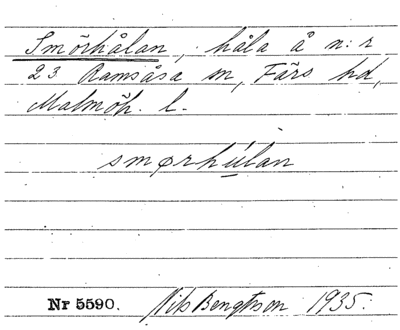 Smörhålan, håla å n:r
23 Ramsåsa sn, Färs hd,
Malmöh. l.
smørhúlan
Nr 5590. Nils Bengtsson 1935.